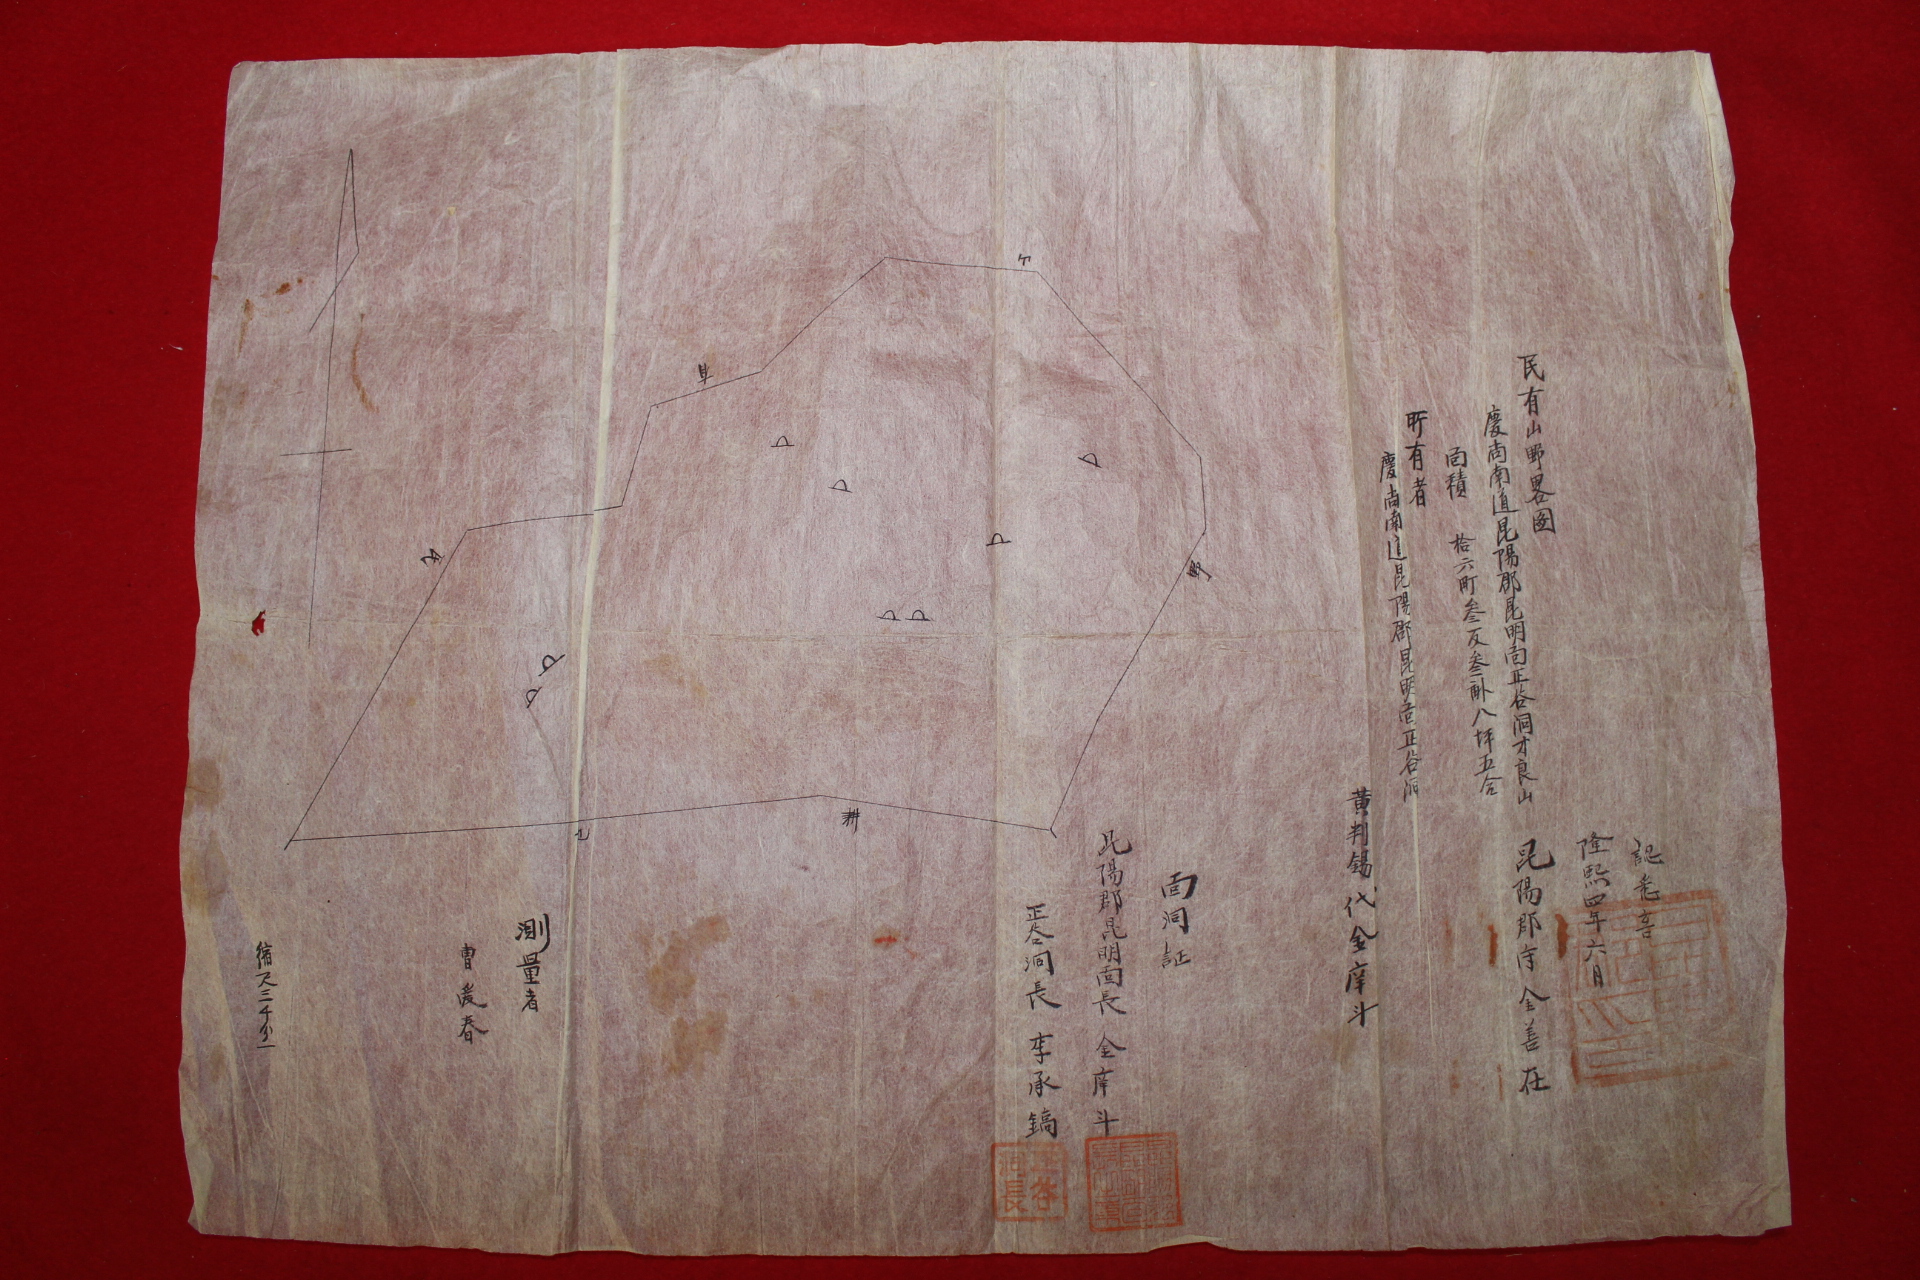 民有山野畧图
慶尚南道昆陽郡昆明面正谷洞才良山
面積 拾六町叁反叁畝八坪五合
所有者
慶尚南道昆陽郡昆明面正谷洞
黃判錫代金庠斗
隆熙四年六月
昆陽郡守金善在
面洞証
昆陽郡昆明面長 金庠斗
正谷洞長 李承鎬
測量者
曺爰春
縮尺三千分一
耕
正谷
洞長